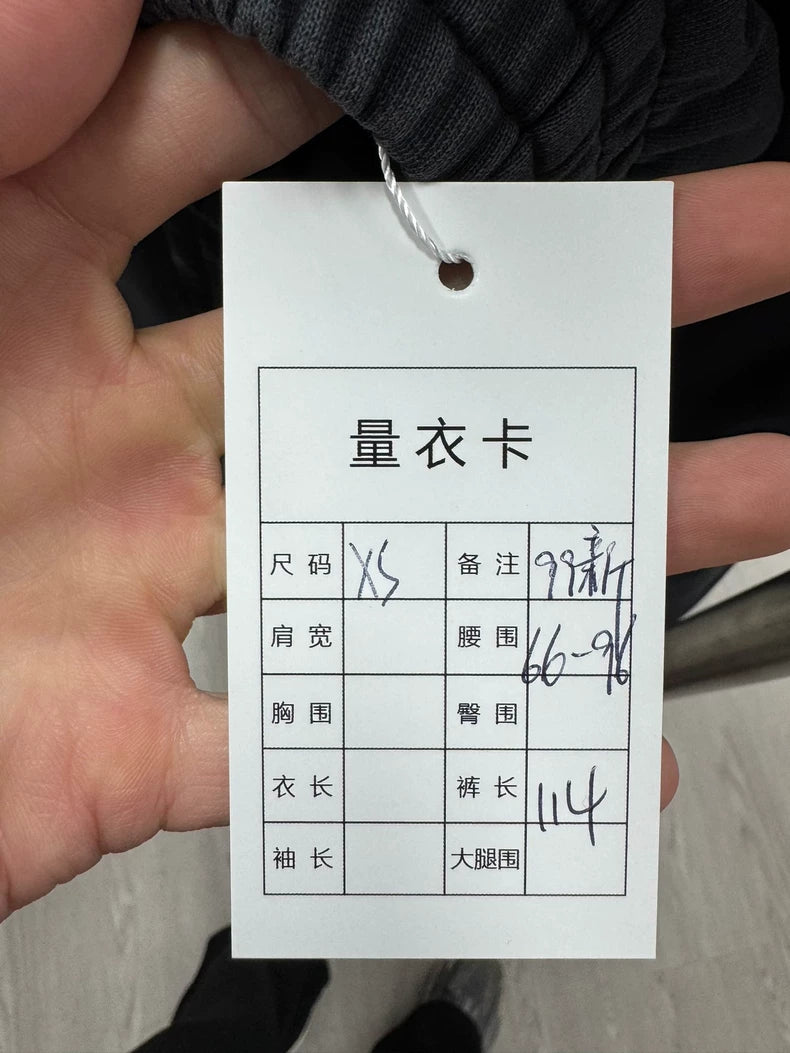 量衣卡
尺码 XS 备注 99新
肩宽 腰围 66-96
胸围 臀围
衣长 裤长 114
袖长 大腿围